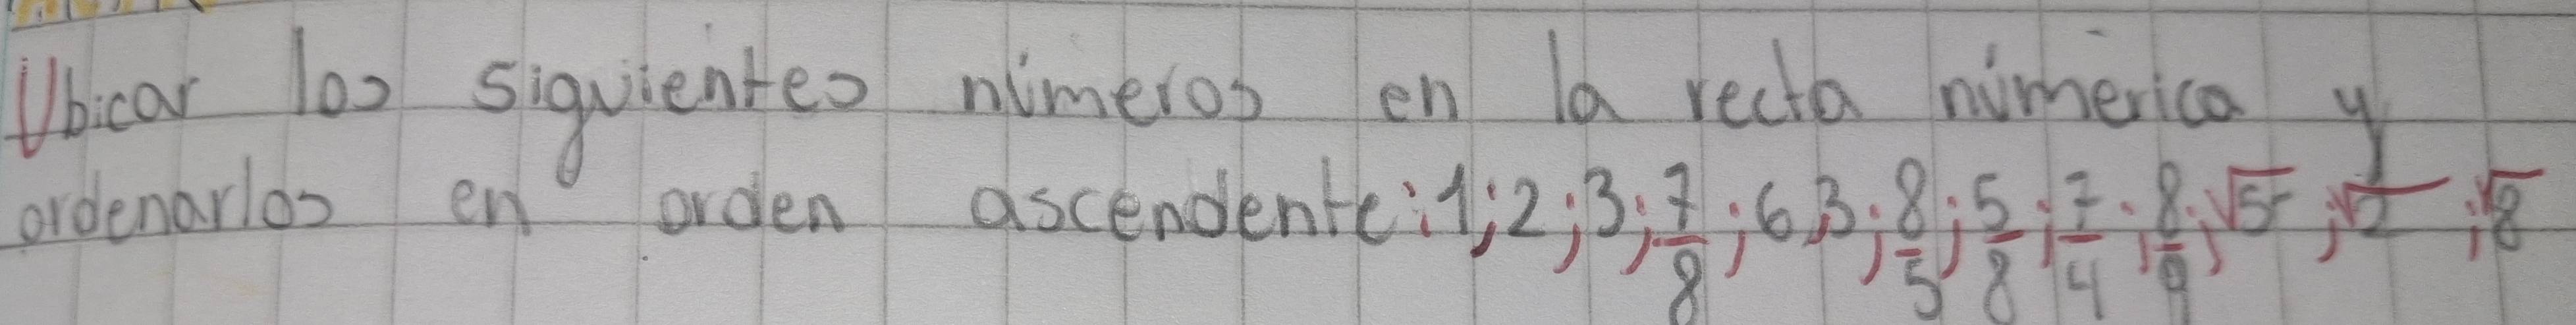 Ubicar los siguientes números en la recta númerica y
ordenarlos en orden ascendente: 1; 2; 3; 7/8; 6,3; 8/5; 5/8; 7/4; 8/9; √5; √2; √8